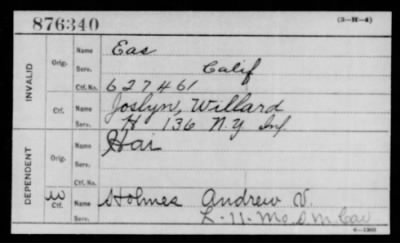 876340 (3-H-4)
INVALID Orig. Name Eas
Serv. Calif
Ctf. No. 627461
Ctf. Name Joslyn, Willard
Serv. H 136 N.Y Inf
DEPENDENT Orig. Name Hai
Serv.
Ctf. No.
W Ctf. Name Holmes Andrew V.
Serv. L-11-Mo S M Cav
6-1909